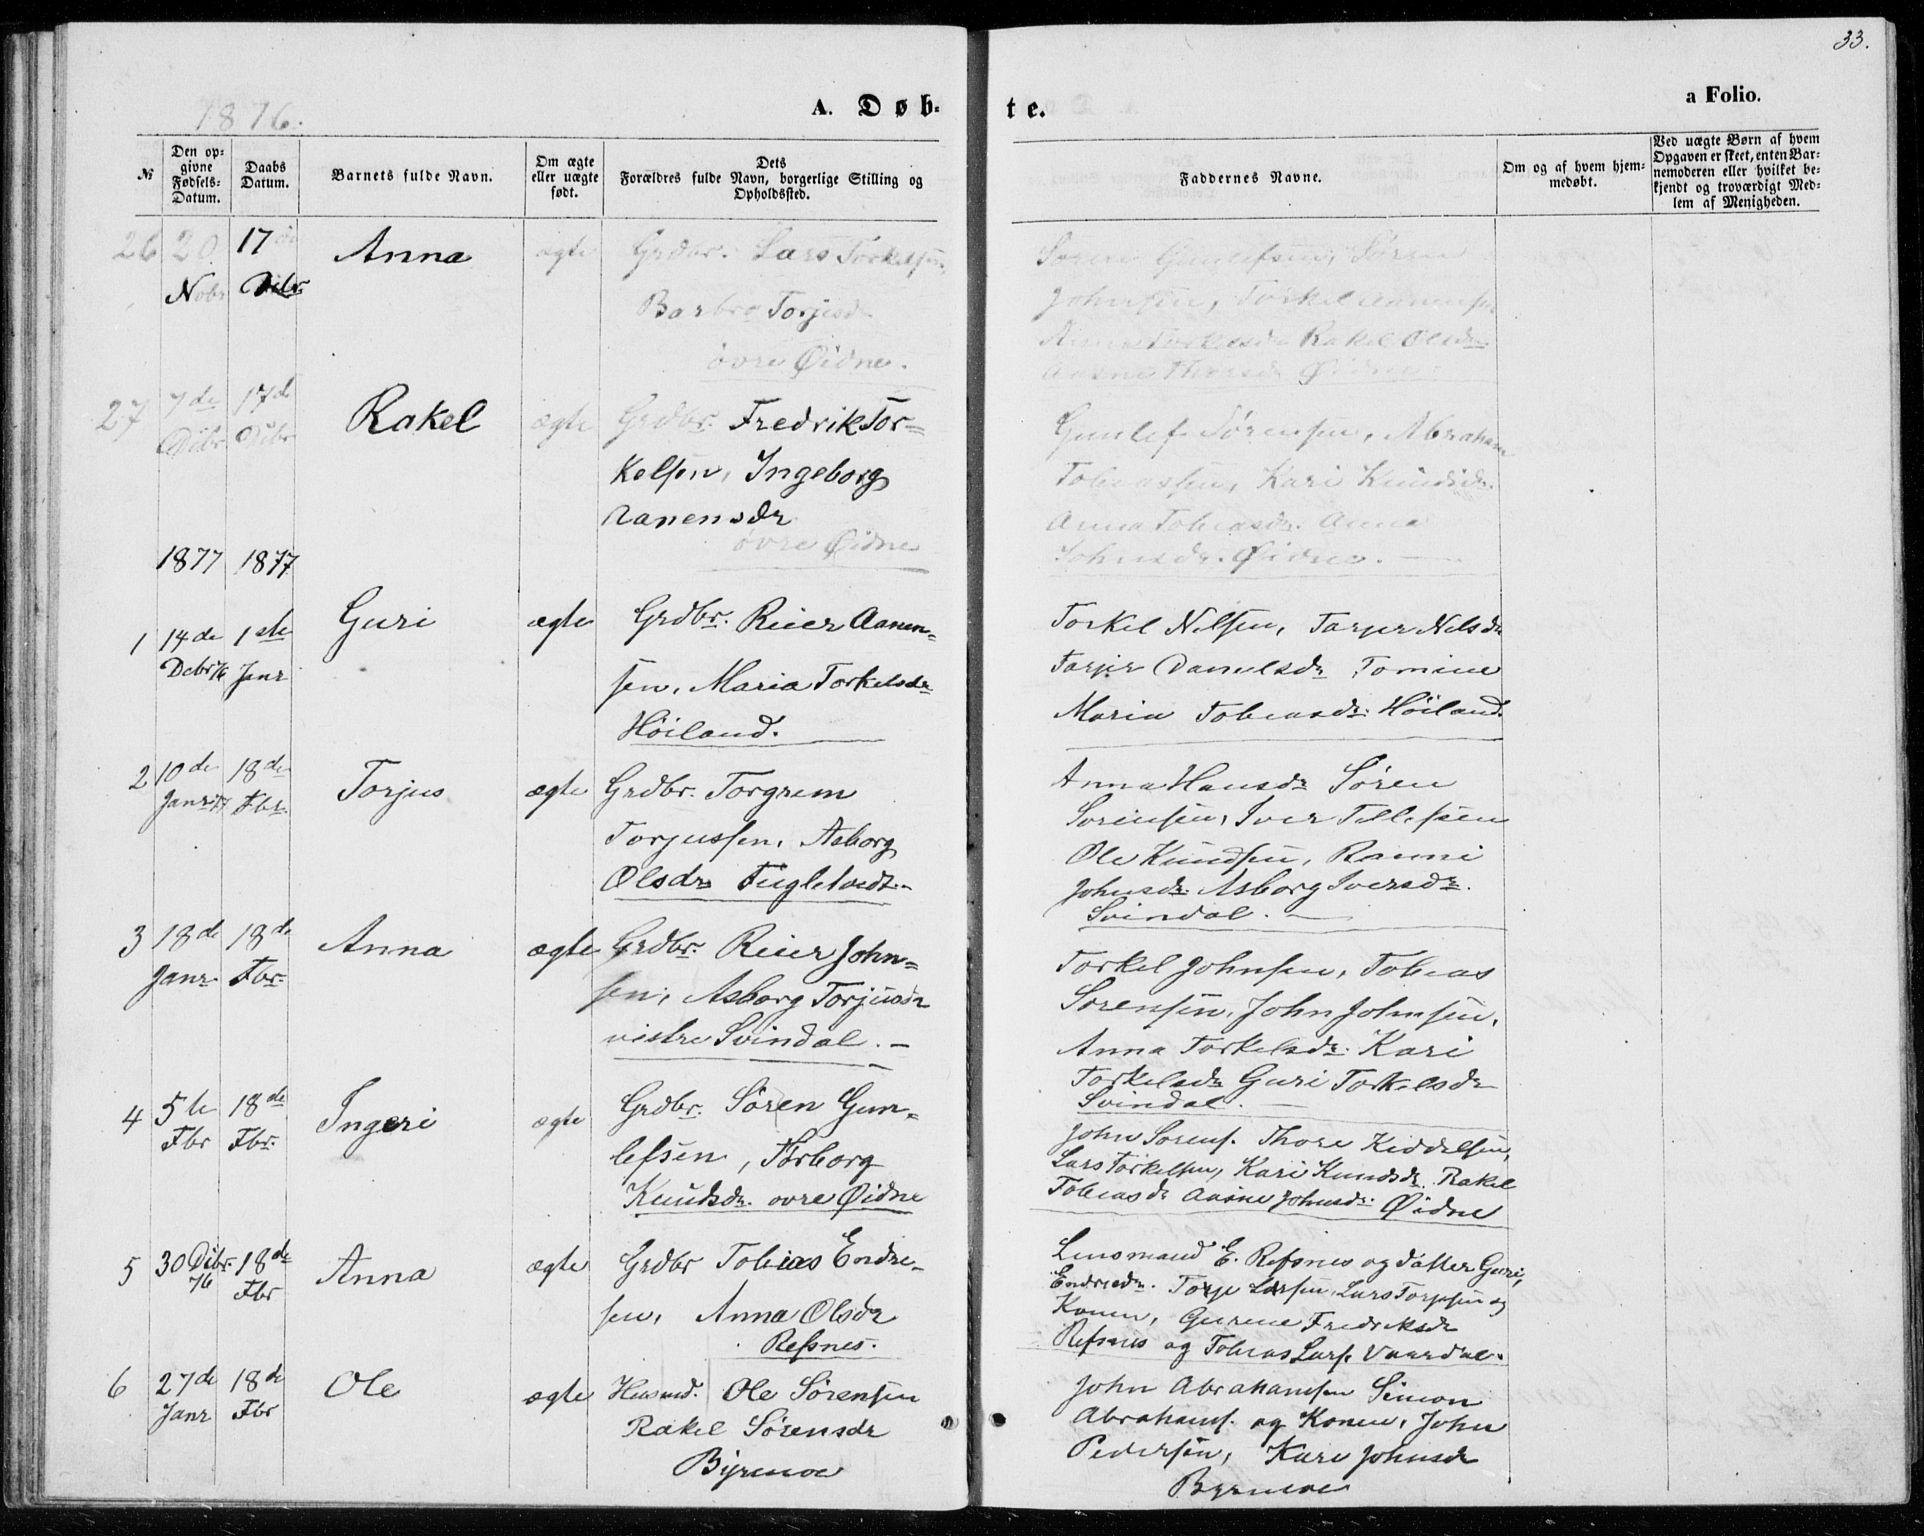 33.
1876.
A. Døb-
te.
a Folio.
№
Den op-
givne
Fødsels-
Datum.
Daabs
Datum.
Barnets fulde Navn.
Om ægte
eller uægte
født.
Dets
Forældres fulde Navn, borgerlige Stilling og
Opholdssted.
Faddernes Navne.
Om og af hvem hjem-
medøbt.
Ved uægte Børn af hvem
Opgaven er skeet, enten Bar-
nemoderen eller hvilket be-
kjendt og troværdigt Med-
lem af Menigheden.
26 20 Nobr
17 Dcbr
Anna
ægte
Grdbr. Lars Torkelsen,
Barbro Torjusdr
övre Øidne.
Søren Gunlefsen, Søren
Johnsen, Torkel Aanensen
Anna Torkelsdr Rakel Olsdr
Aasne Thorsdr Øidne.
27 7de Dcbr
17de Dcbr
Rakel
ægte
Grdbr. Fredrik Tor-
kelsen, Ingeborg
Aanensdr
övre Øidne
Gunlef Sörensen, Abraham
Tobiassen, Kari Knudsdr.
Anna Tobiasdr. Anna
Johnsdr. Øidne.
1877 1877
1 14de Debr 76
1ste Janr
Guri
ægte
Grdbr. Reier Aanen-
sen, Maria Torkelsdr
Höiland.
Torkel Nilsen, Tarjer Nelsdr
Tarjer Danielsdr Tomine
Maria Tobiasdr. Höiland.
2 10de Janr 77
18de Fbr.
Torjus
ægte
Grdbr. Torgrem
Torjussen, Asborg
Olsdr Fugletvedt.
Anna Hansdr Sören
Sörensen, Iver Tellefsen
Ole Knudsen, Ranni
Johnsdr. Asborg Iversdr.
Svindal.
3 18de Janr
18de Fbr.
Anna
ægte
Grdbr. Reier John-
sen, Asborg Torjusdr
vestre Svindal.
Torkel Johnsen, Tobias
Sorensen, John Johnsen,
Anna Torkelsdr. Kari
Torkelsdr Guri Torkelsdr
Svindal.
4 5te Fbr
18de Fbr.
Ingeri
ægte
Grdbr. Sören Gun-
lefsen, Torborg
Knudsdr. ovre Øidne
John Sorens. Thore Kiddelsen,
Lars Torkelsen, Kari Knudsdr. Rakel
Tobiasdr Aasne Johnsdr. Øidne
5 30 Dcbr. 76
18de Fbr
Anna
ægte
Grdbr Tobias Endre-
sen, Anna Olsdr
Refsnes.
Lensmand E. Refsnes og datter Guri,
Endresdr. Torje Larsen, Lars Torjesen og
Konen, Gurine Fredriksdr
Refsnes og Tobias Lars. Vaardal.
6 27de Janr
18de Fbr
Ole
ægte
Husmd. Ole Sörensen
Rakel Sörensdr
Byremoe
John Abrahamsen Simon
Abrahams. og Konen, John
Pedersen, Kari Johnsdr
Byremoe